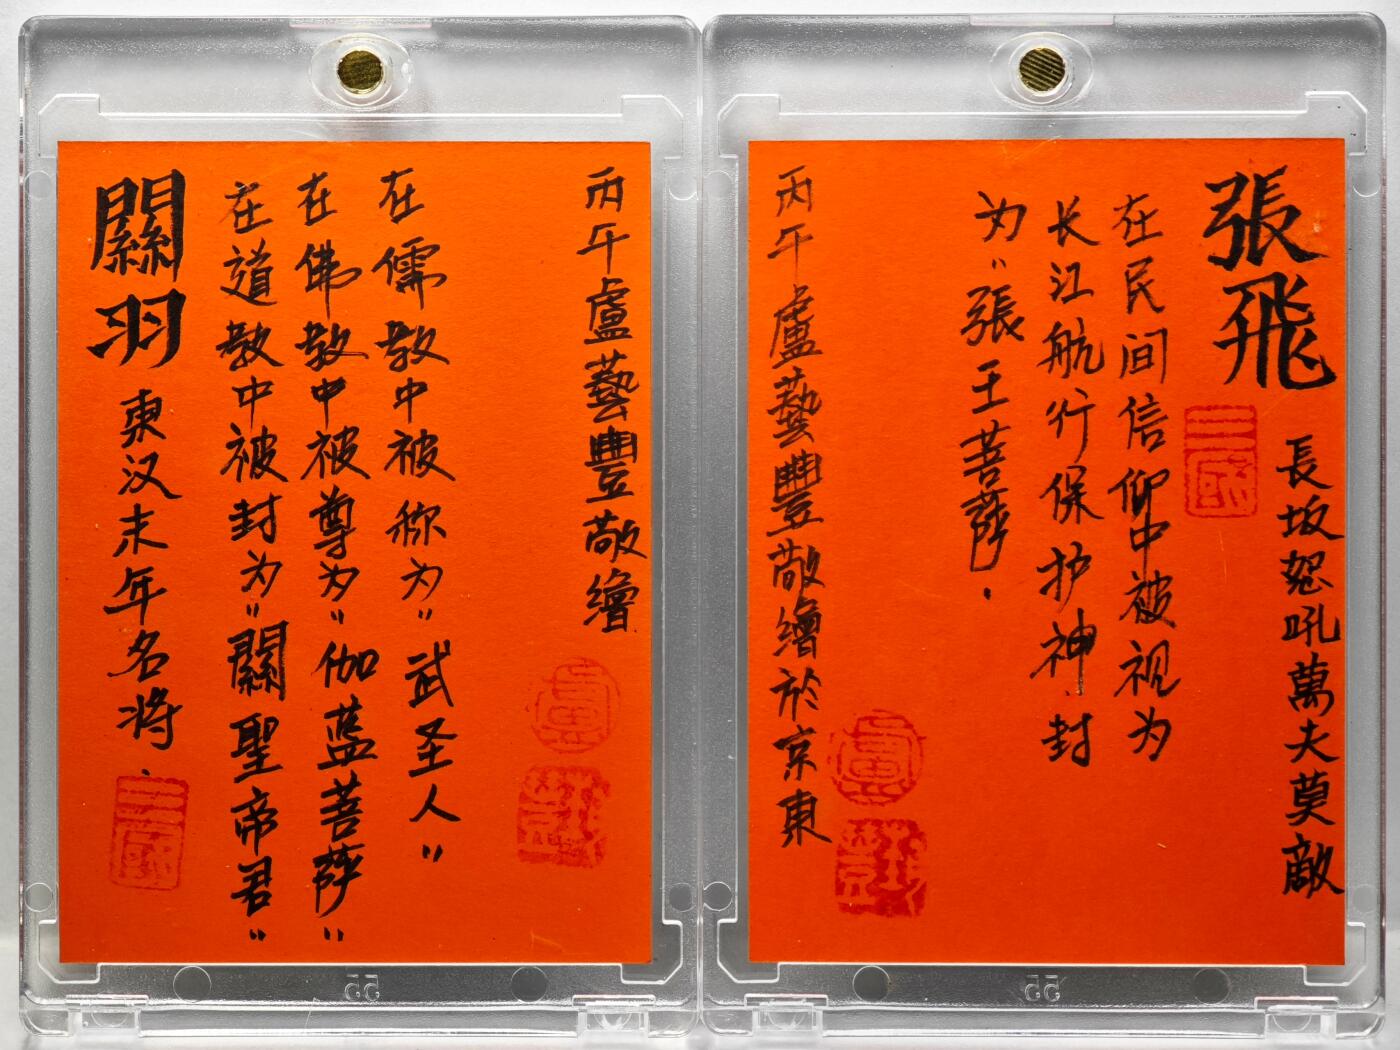 關羽
東汉末年名将.
三國
在道教中被封为"關聖帝君"
在佛教中被尊为"伽蓝菩萨"
在儒教中被称为"武圣人"
丙午盧藝豐敬繪
盧
張飛
長坂怒吼萬夫莫敵
三國
在民间信仰中被视为
长江航行保护神.封
为"張王菩萨.
丙午盧藝豐敬繪於京東
盧
55
55